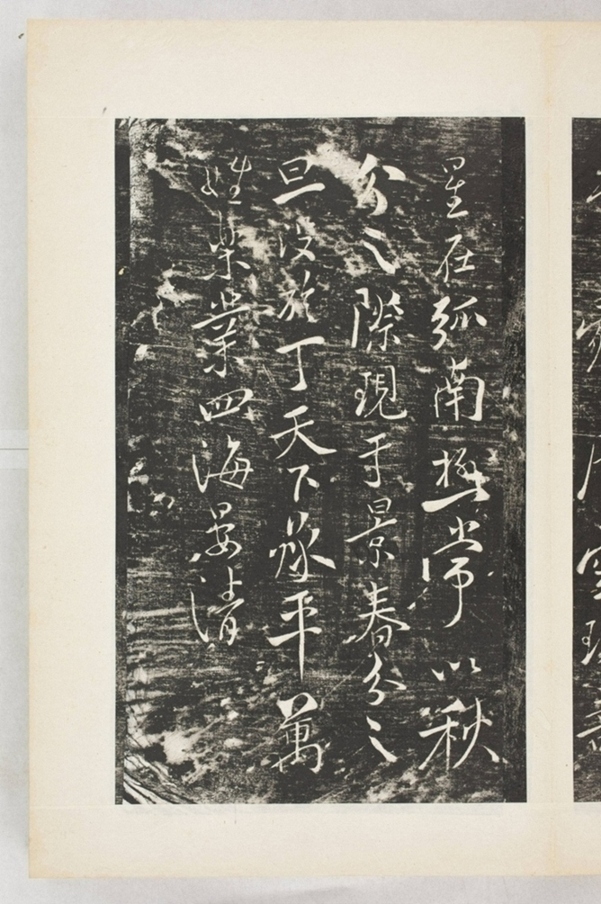 星在弧南極常以秋
分之際現于景春分之
旦没於丁天下平萬
姓樂業四海晏清